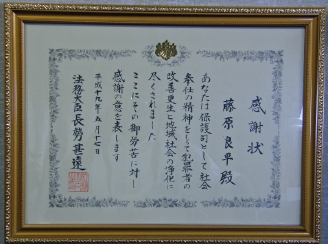 感謝状
藤原良平殿
あなたは保護司として社会
奉仕の精神をもって犯罪者の
改善更生と地域社会の浄化に
尽くされました
ここにその御労苦に対し
感謝の意を表します
平成十九年五月十七日
法務大臣長勢甚遠